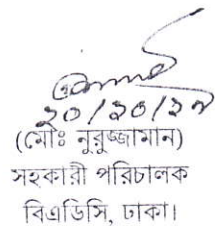 ২০/১০/২৭
(মোঃ নুরুজ্জামান)
সহকারী পরিচালক
বিএডিসি, ঢাকা।